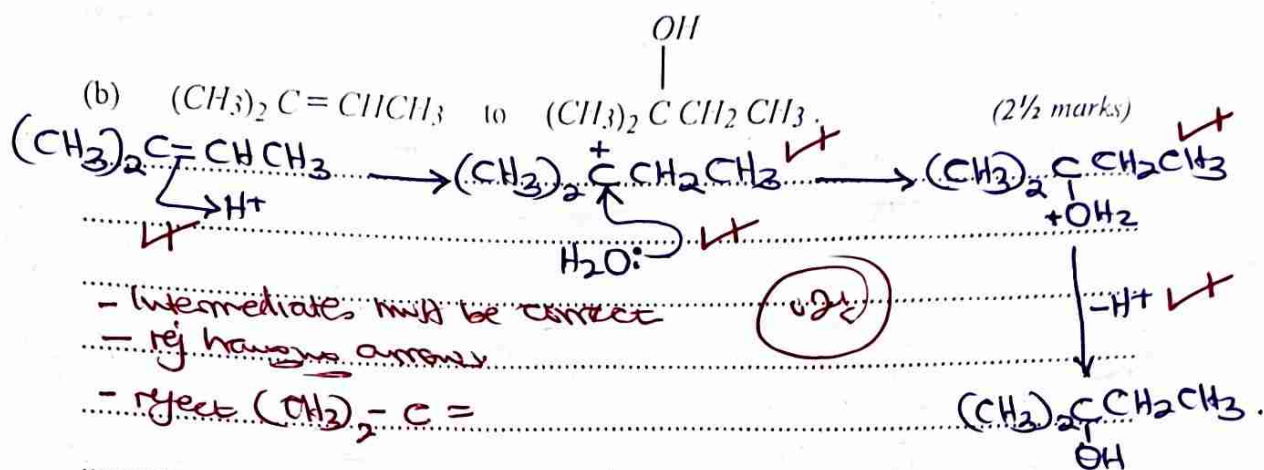 OH
(b) (CH3)2 C = CHCH3 to (CH3)2 C CH2 CH3. (2½ marks)
(CH3)2C=CHCH3 → (CH3)2C+CH2CH3 → (CH3)2C CH2CH3
H+ +OH2
H2O:
- Intermediates must be correct -H+
- rej arrows
- reject (CH3)2 - C = (CH3)2CCH2CH3.
OH